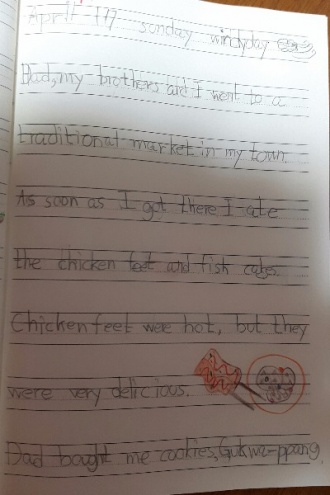 April 17 sunday windyday
Dad, my brothers and I went to a
traditional market in my town.
As soon as I got there I ate
the chicken feet and fish cakes.
Chicken feet wee hot, but they
were very delicious.
Dad bought me cookies, Gukwa-ppang